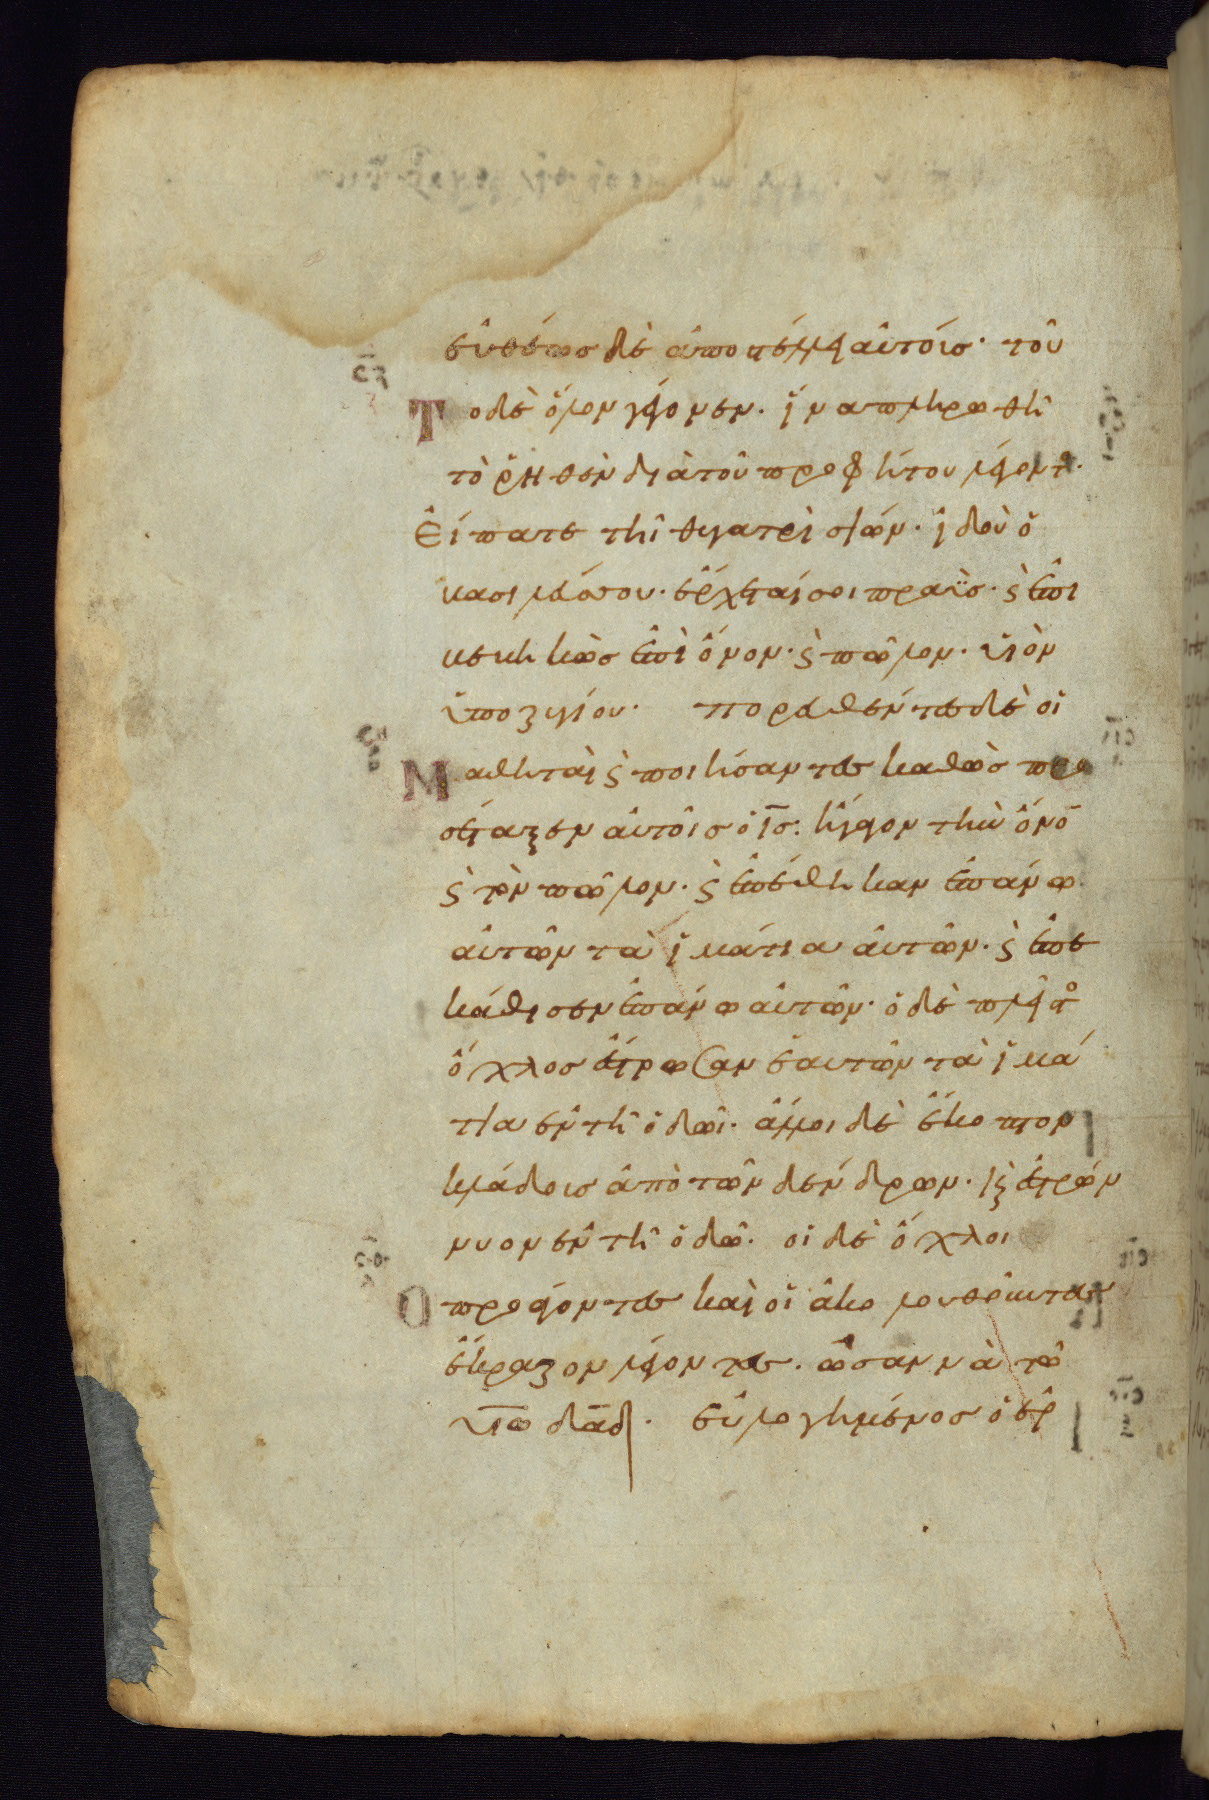 εὐθέως δὲ ἀποστέλλει αὐτούς· τοῦ
Τοδὲ ὅλον γέγονεν· ἵνα πληρωθῆ
τὸ ῥηθὲν διὰ τοῦ προφήτου λέγοντος·
Εἴπατε τῆ θυγατρὶ σιών· ἰδοὺ ὁ
βασιλεύς σου· ἔρχεταί σοι πραΰς· ϗ ἐπι
βεβηκὼς ἐπὶ ὄνον· ϗ πῶλον· υἱὸν
ὑποζυγίου· πορευθέντες δὲ οἱ
Μαθηταὶ ϗ ποιήσαντες καθὼς προ
σέταξεν αὐτοῖς ὁ ι̅ς̅· ἤγαγον τὴν ὄνο̅
ϗ τὸν πῶλον· ϗ ἐπέθηκαν ἐπάνω
αὐτῶν τὰ ἱμάτια αὐτῶν· ϗ ἐπε
κάθισεν ἐπάνω αὐτῶν· ὁ δὲ πλεῖστος
ὄχλος ἔστρωσαν ἑαυτῶν τὰ ἱμά
τια ἐν τῆ ὁδῶ· ἄλλοι δὲ ἔκοπτον
κλάδους ἀπὸ τῶν δένδρων· ϗ ἐστρών
νυον ἐν τῆ ὁδῶ· οἱ δὲ ὄχλοι
Ο προάγοντες καὶ οἱ ἀκολουθοῦντες
ἔκραζον λέγοντες· ὡσαννὰ τῶ
υ̅ι̅ω̅ δ̅α̅δ̅· εὐλογημένος ὁ ἐρ